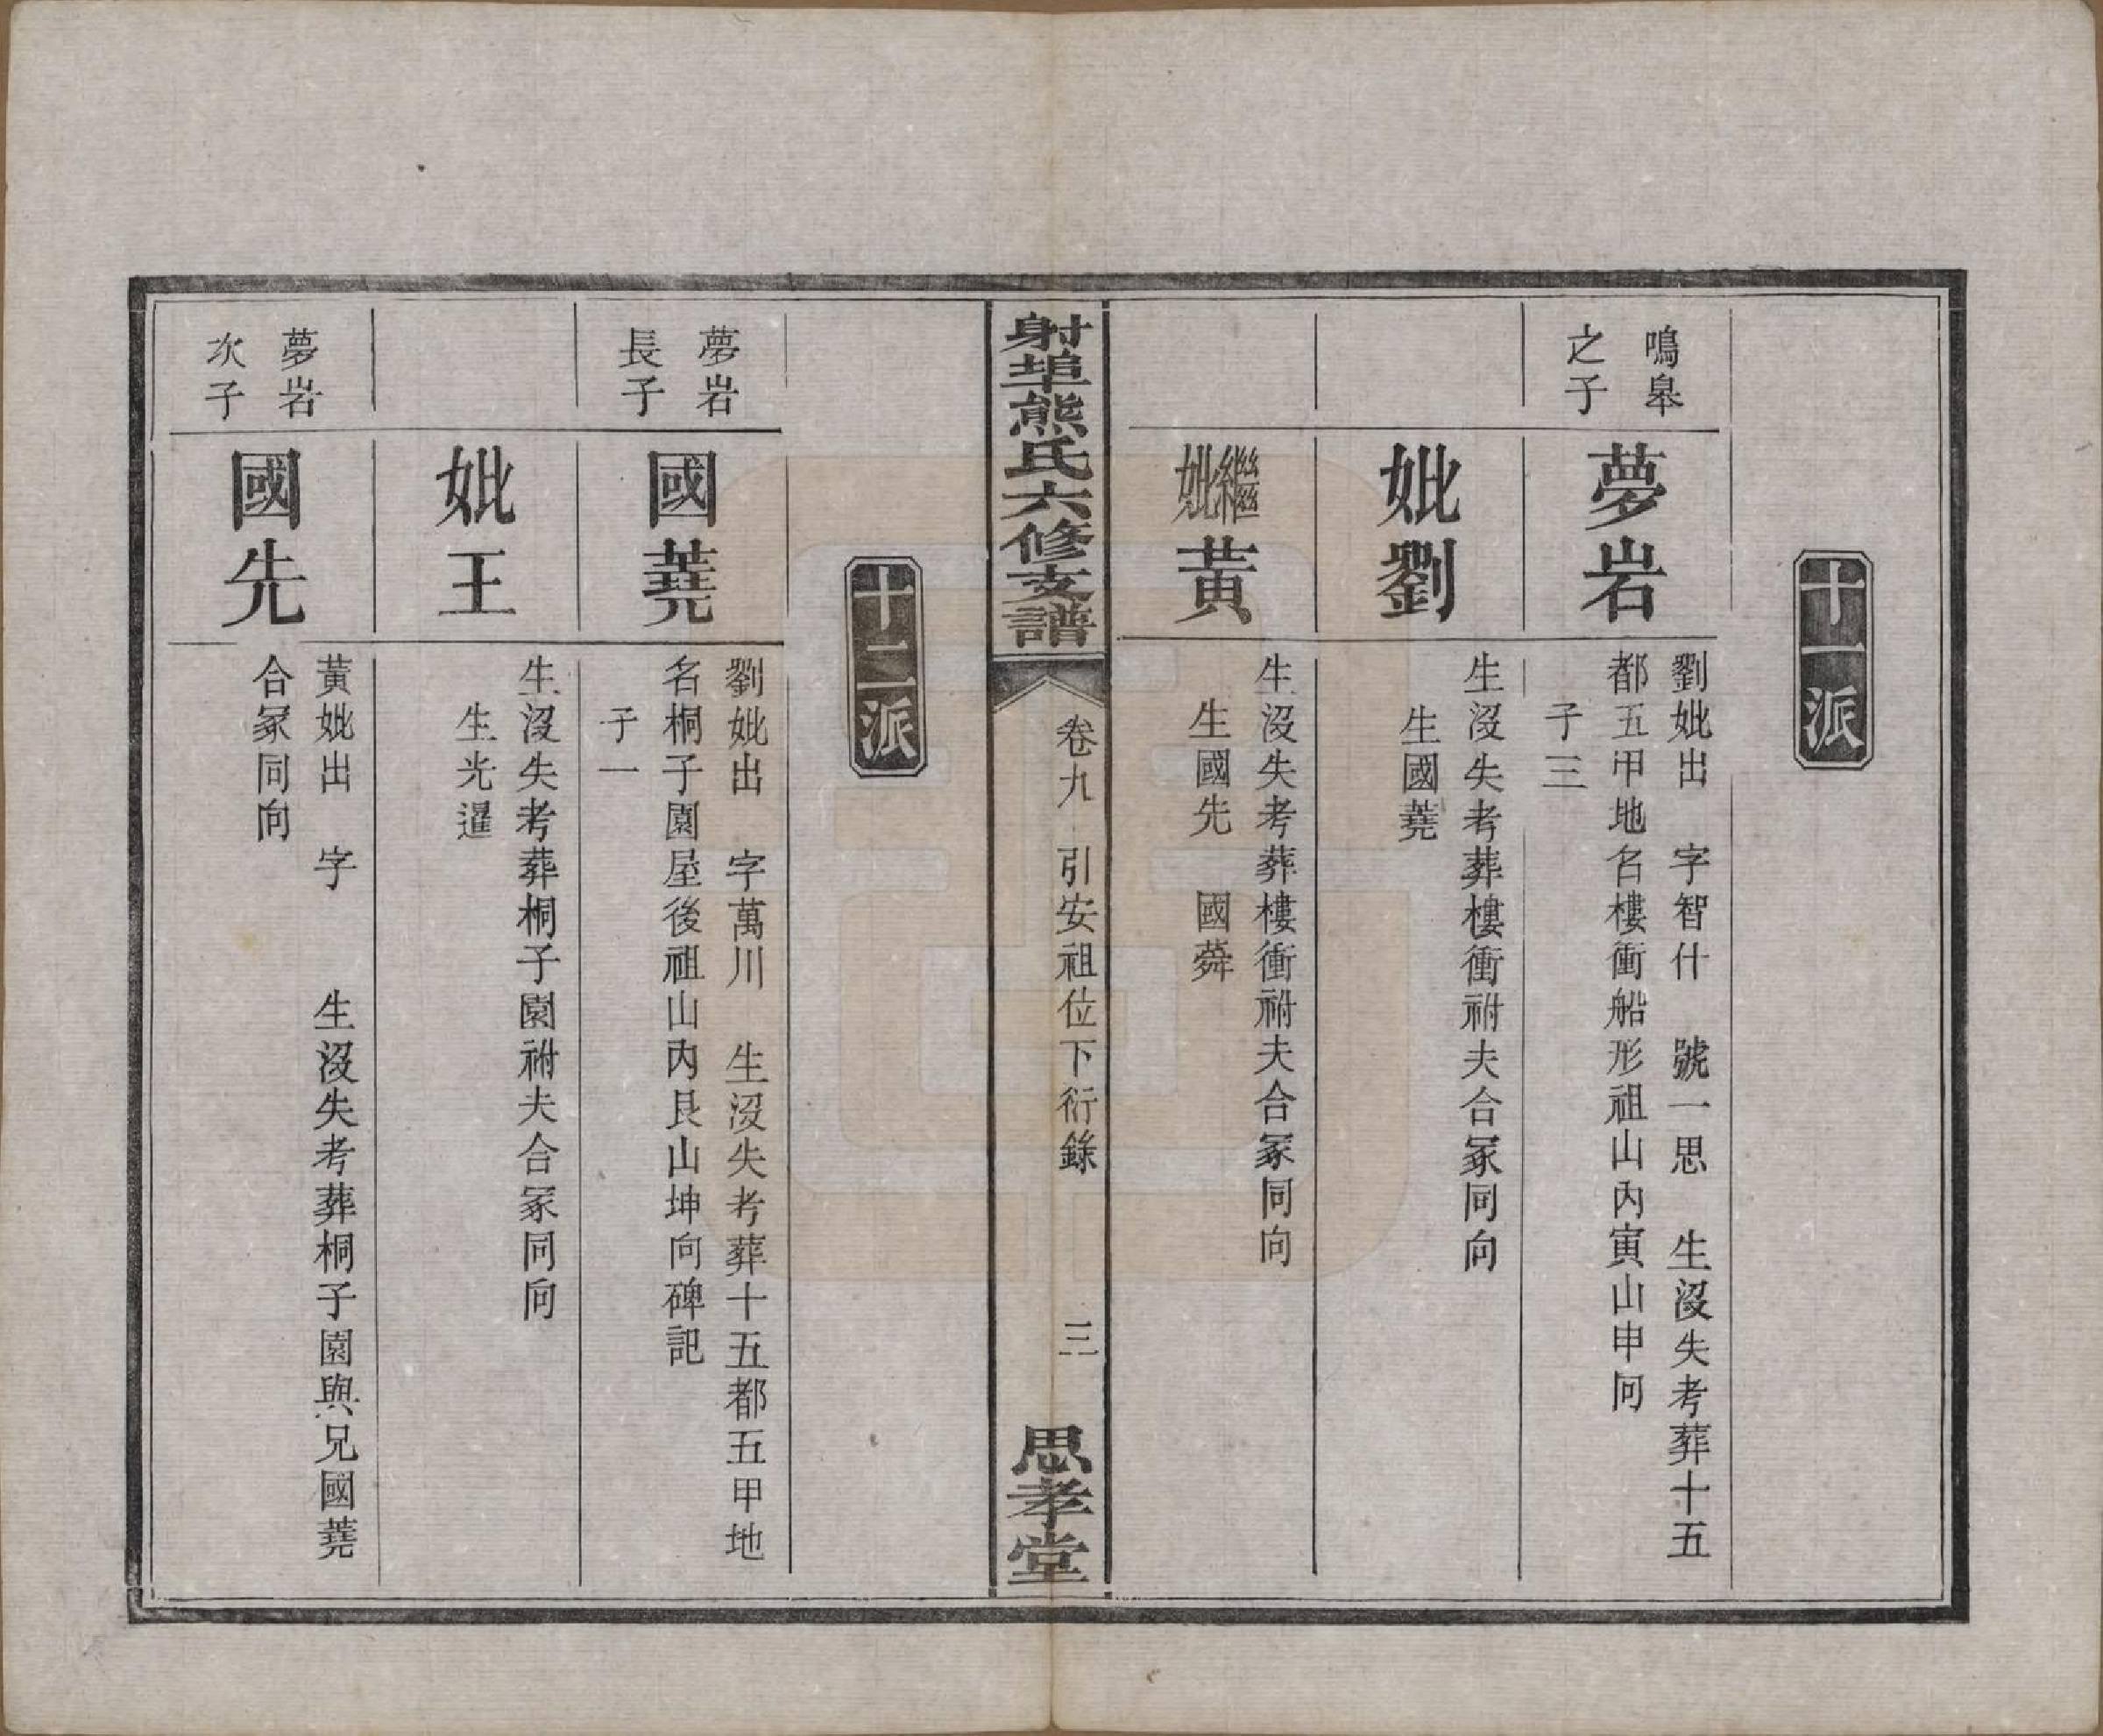 十一派
鳴皋
之子
夢岩
劉妣出 字智什 號一思 生沒失考葬十五
都五甲地名樓衝船形祖山內寅山申向
子三
妣劉
生沒失考葬樓衝祔夫合冢同向
生國蕘
繼妣黃
生沒失考葬樓衝祔夫合冢同向
生國先 國蕣
射埠熊氏六修支譜
卷九 引安祖位下衍錄
三
思孝堂
十二派
夢岩
長子
國蕘
劉妣出 字萬川 生沒失考葬十五都五甲地
名桐子園屋後祖山內艮山坤向碑記
子一
妣王
生沒失考葬桐子園祔夫合冢同向
生光暹
夢岩
次子
國先
黃妣出 字 生沒失考葬桐子園與兄國蕘
合冢同向